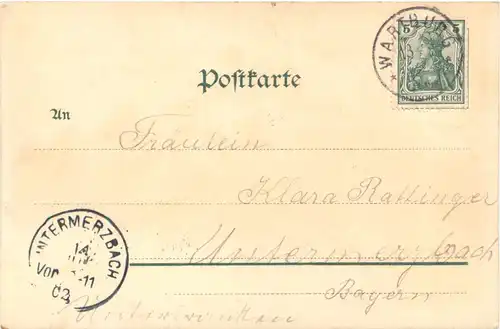 WARTBURG
5 5
DEUTSCHES REICH
Postkarte
An
Fräulein
Klara Rattinger
Untermerzbach
Bayern
Unterfranken
UNTERMERZBACH
14
Vor 
-11
02